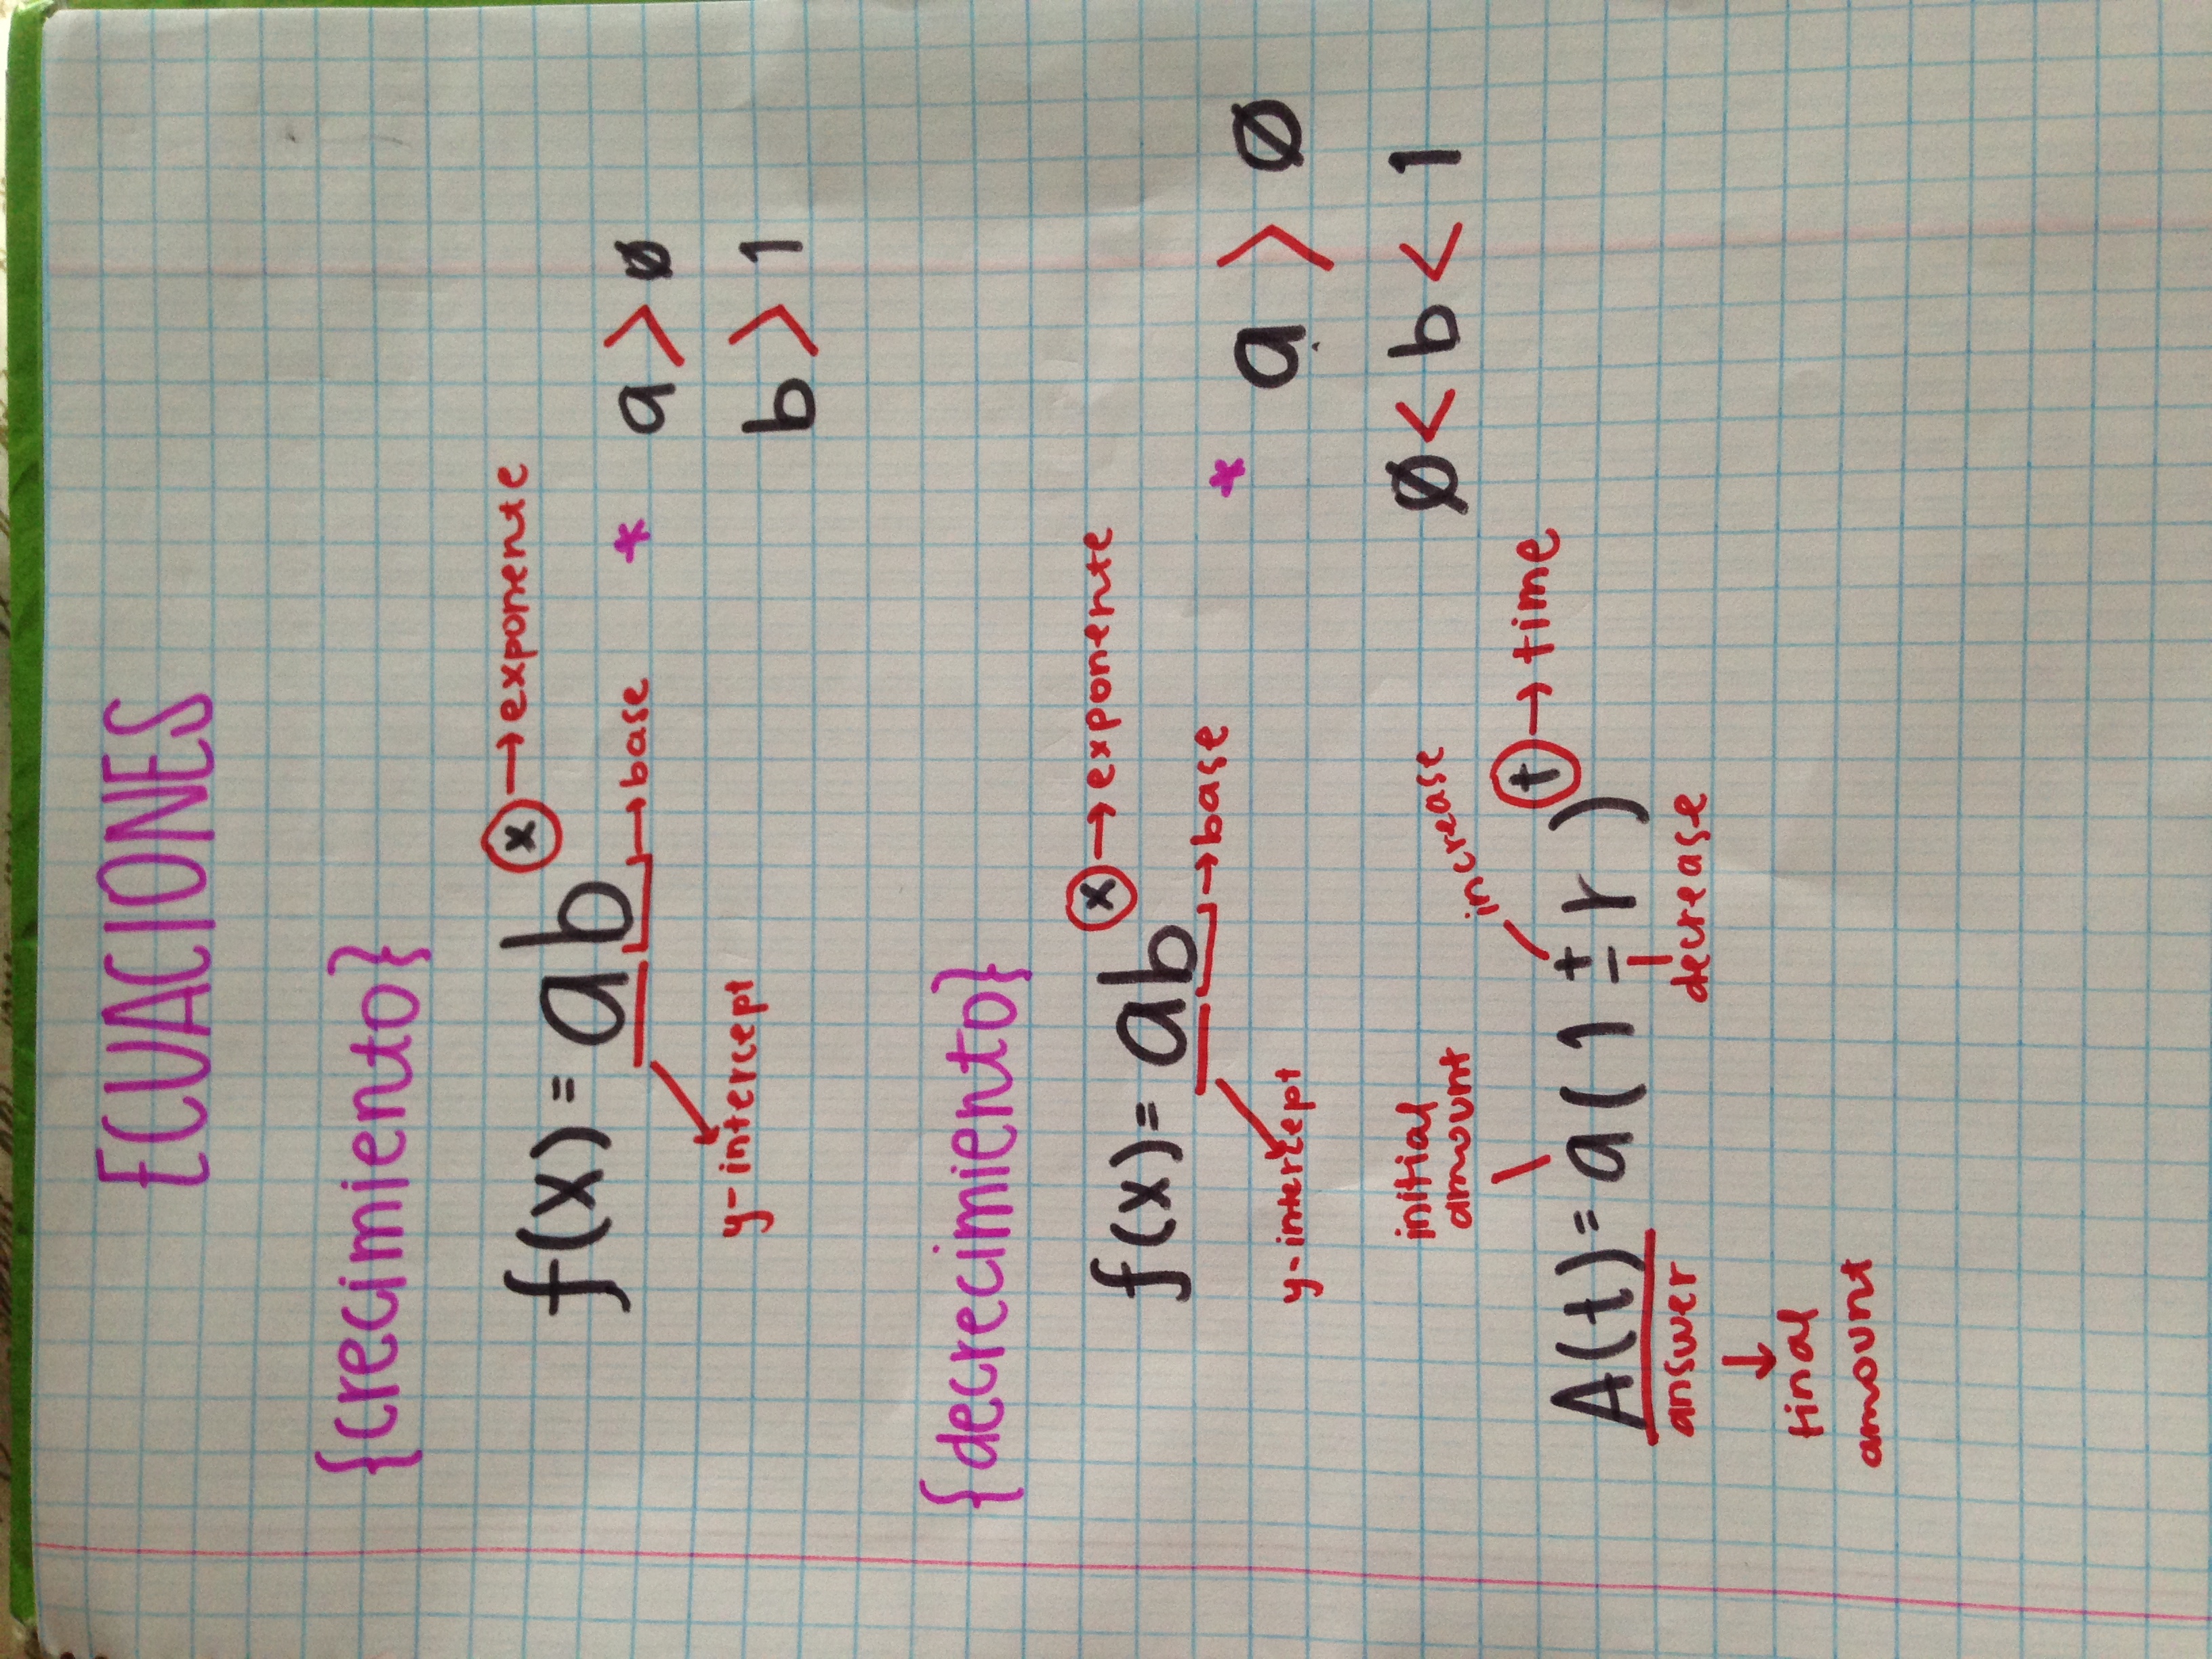 ECUACIONES
{crecimiento}
f(x) = ab^x → exponente
→ base
y-intercept
* a > Ø
b > 1
{decrecimiento}
f(x) = ab^x → exponente
→ base
y-intercept
* a > Ø
Ø < b < 1
initial amount
increase
A(t) = a(1 ± r)^t → time
answer
decrease
↓
final
amount